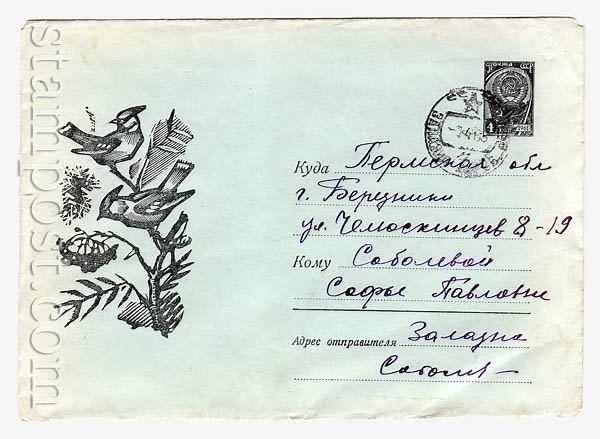 stampost.com
ПОЧТА СССР
4
1961
Куда Пермская обл
г. Березники
ул. Челюскинцев 8-19
Кому Соболевой
Софье Павловне
Адрес отправителя Залазна